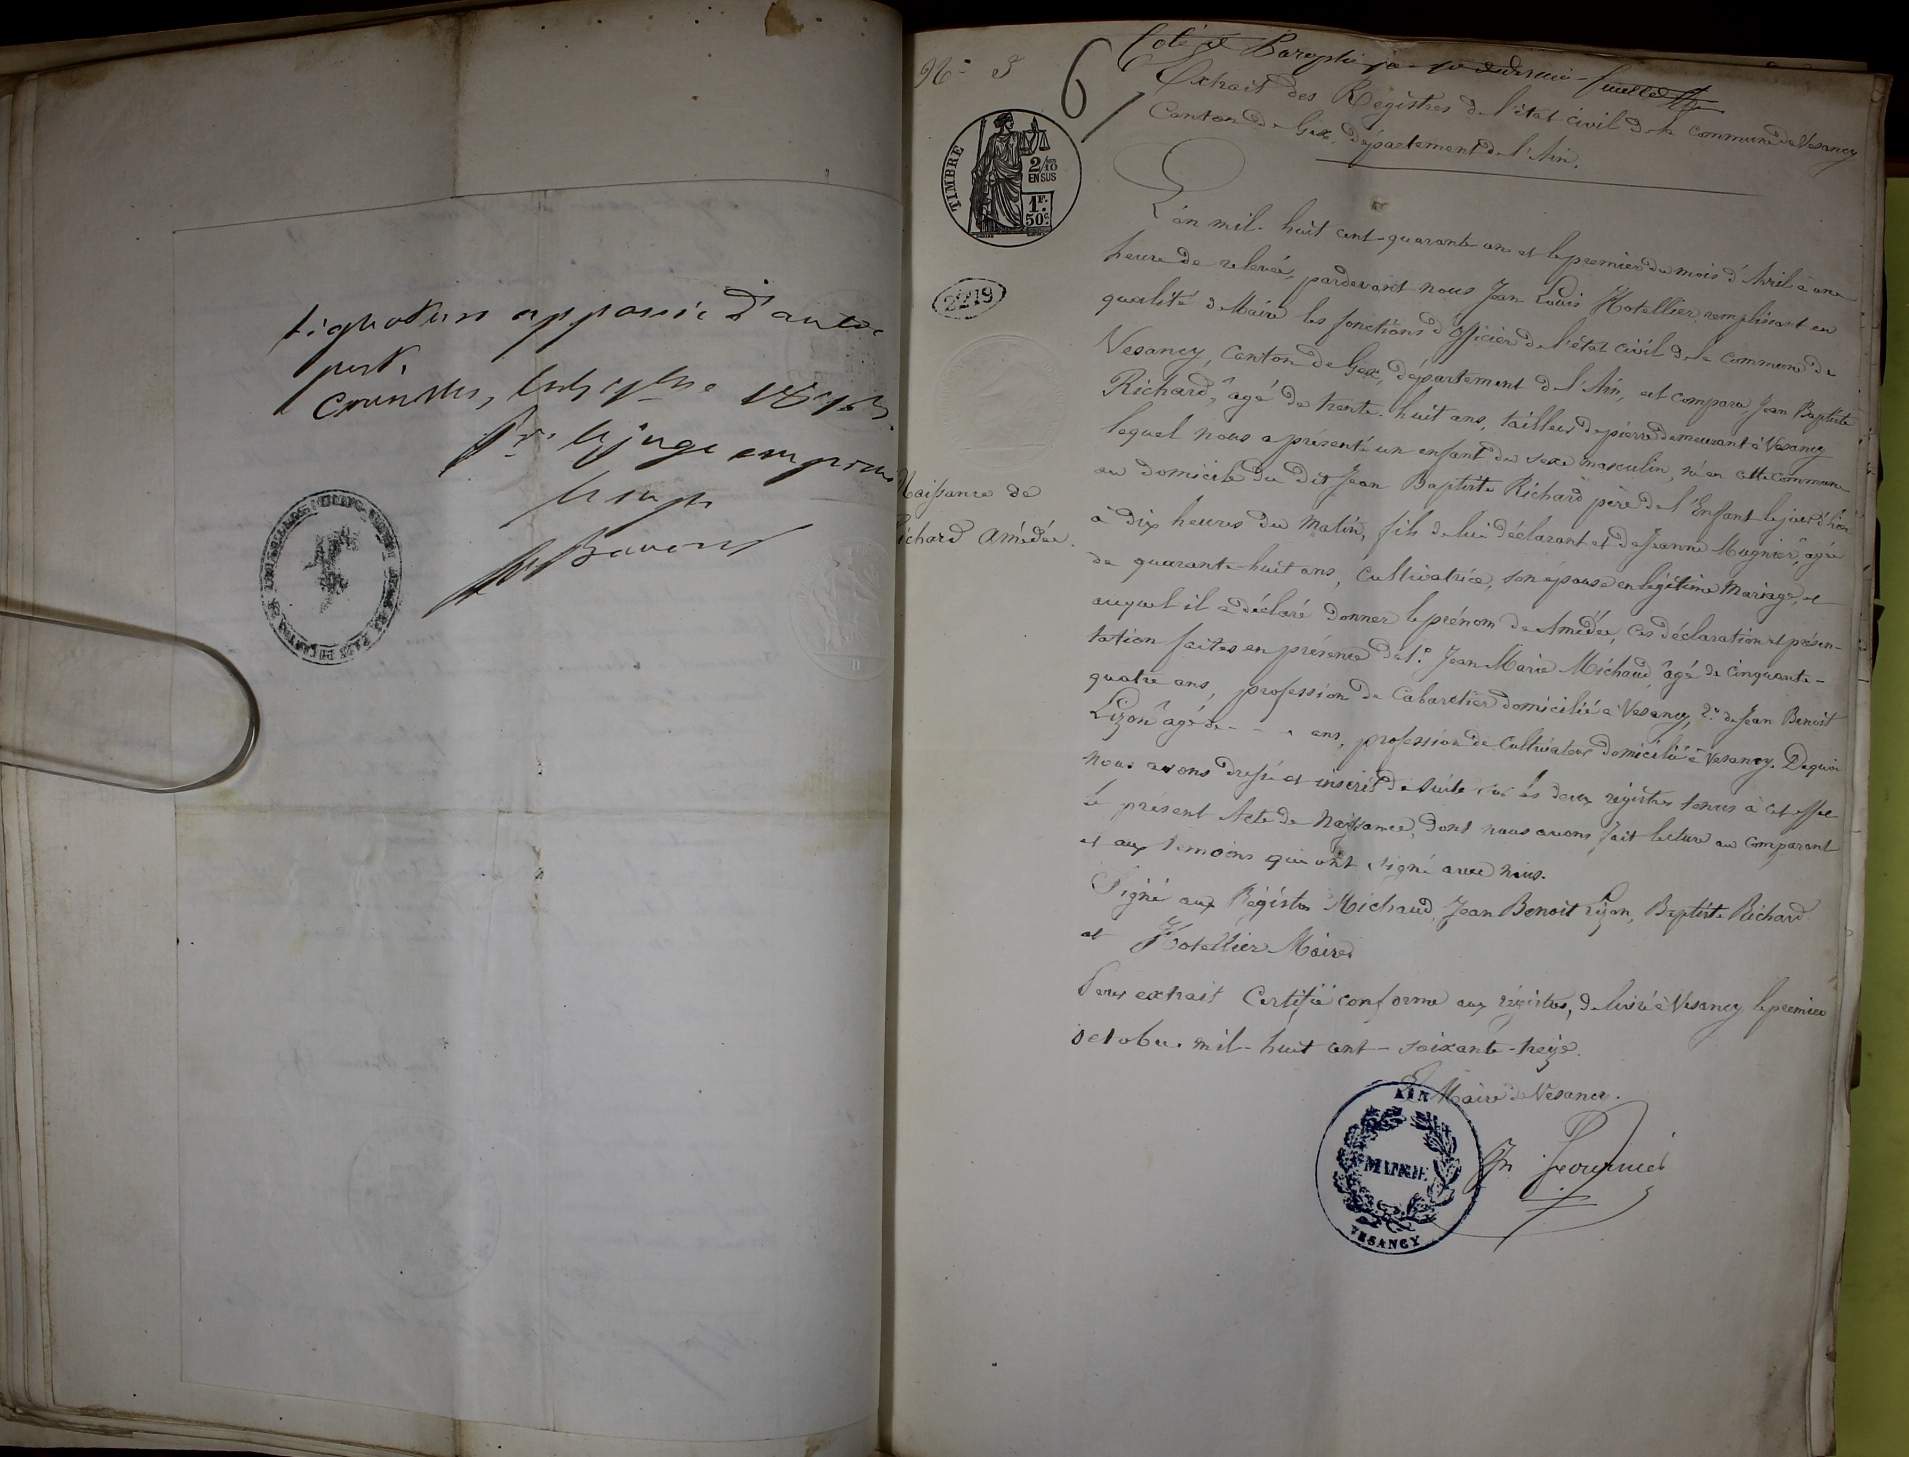 signature apposée d'autre
part.
1873.
Pr. le juge empêché
N° 5
6
Coté et Paraphé
Extrait des Registres de l'état civil de la commune de Vesancy
Canton de Gex, département de l'Ain.
TIMBRE
2/10
EN SUS
1F.
50c.
2219
Naissance de
Richard Amédée.
L'an mil-huit cent-quarante un et le premier du mois d'Avril à une
heure de relevée, pardevant nous Jean Louis Hotellier remplissant en
qualité de Maire les fonctions d'officier de l'état civil de la commune de
Vesancy, Canton de Gex, département de l'Ain, est comparu, Jean Baptiste
Richard, âgé de trente-huit ans, tailleur de pierre demeurant à Vesancy
lequel nous a présenté un enfant du sexe masculin, né en cette commune
au domicile du dit Jean Baptiste Richard père de l'Enfant le jour d'hier
à dix heures du matin, fils de lui déclarant et de Jeanne Mugnier, âgée
de quarante-huit ans, Cultivatrice, son épouse en légitime Mariage, et
auquel il a déclaré donner le prénom de Amédée, ces déclaration et présen-
tation faites en présence de 1° Jean Marie Michaud âgé de cinquante-
quatre ans, profession de Cabaretier domicilié à Vesancy, 2° de Jean Benoit
Lizon âgé de - - - ans, profession de Cultivateur domicilié à Vesancy. De quoi
nous avons dressé et inscrit de suite sur les deux régistres tenus à cet effet
le présent Acte de Naissance, dont nous avons fait lecture au Comparant
et aux témoins qui ont signé avec nous.
Signé aux Régistres Michaud, Jean Benoit Lizon, Baptiste Richard
et Hotellier Maire
Pour extrait Certifié conforme aux régistres, délivré à Vesancy le premier
octobre mil-huit cent-soixante-treize.
Le Maire de Vesancy.
AIN
MAIRIE
VESANCY
Fournier